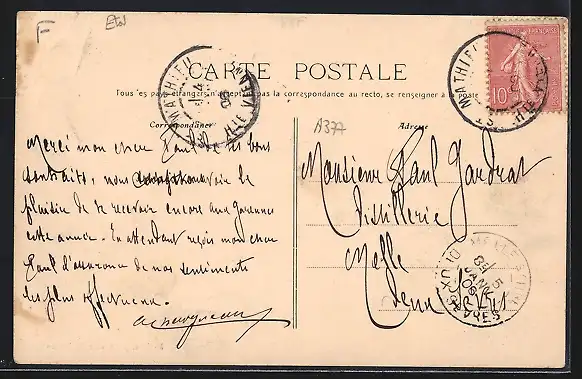 F
Etol
CARTE POSTALE
Tous les pays étrangers n'acceptent pas la correspondance au recto, se renseigner à la poste
Correspondance
Adresse
A377
Merci mon cher Paul de tes bons
souhaits, nous
plaisir de te recevoir encore aux Garennes
cette année. En attendant reçois mon cher
Paul l'assurance de nos sentiments
les plus affectueux.
Monsieur Paul Gardrat
Distillerie
Melle
Deux Sèvres
ST MATHIEU
HTE VIENNE
FRANÇAISE
10
ST MATHIEU
MELLE
DEUX SEVRES
5
JANV
06